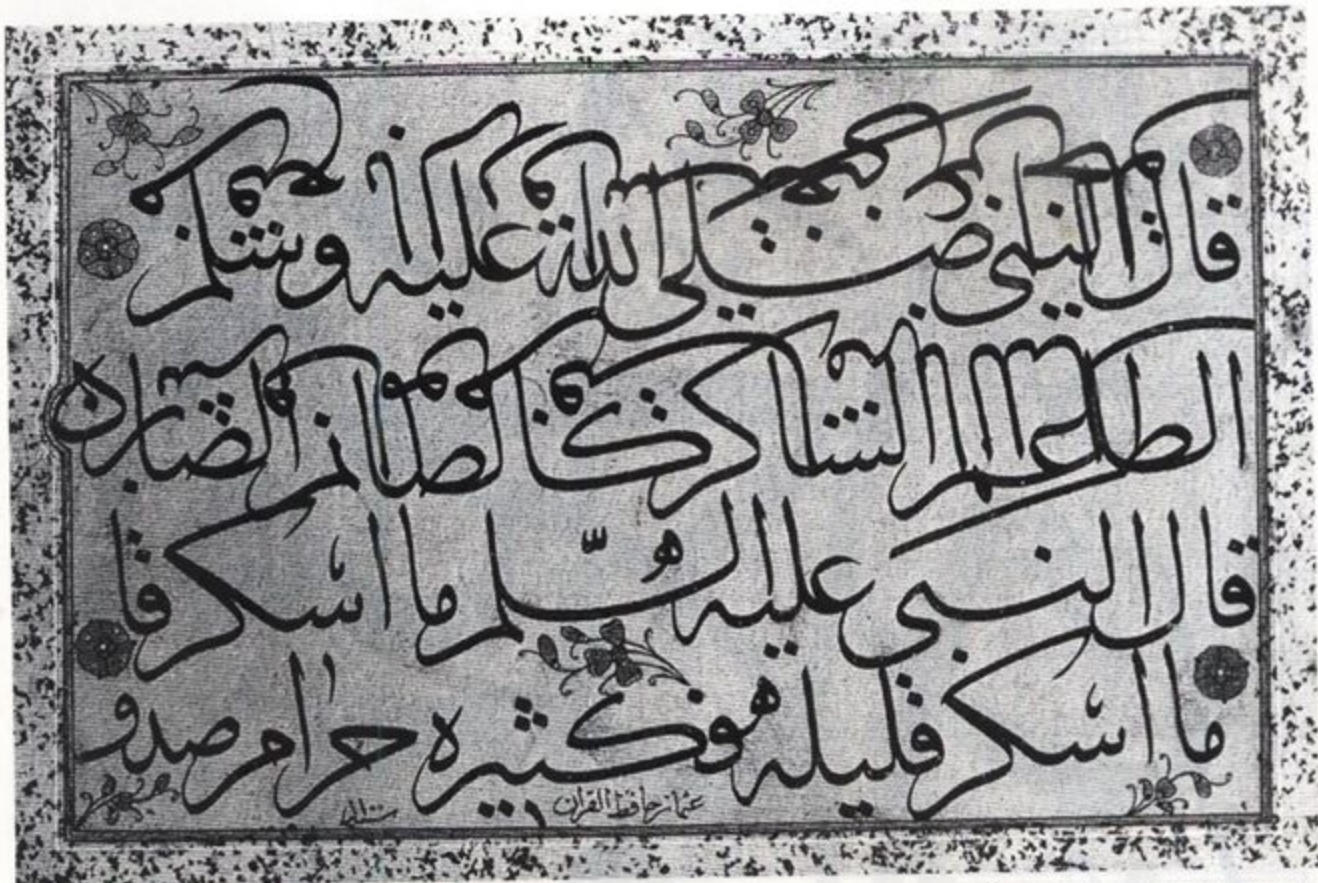 قال النبي صلى الله عليه وسلم
الطاعم الشاكر كالصائم الصابر ه
قال النبي عليه السلم ما اسكر
ما اسكر قليله كثيره حرام
عثمان حافظ القران